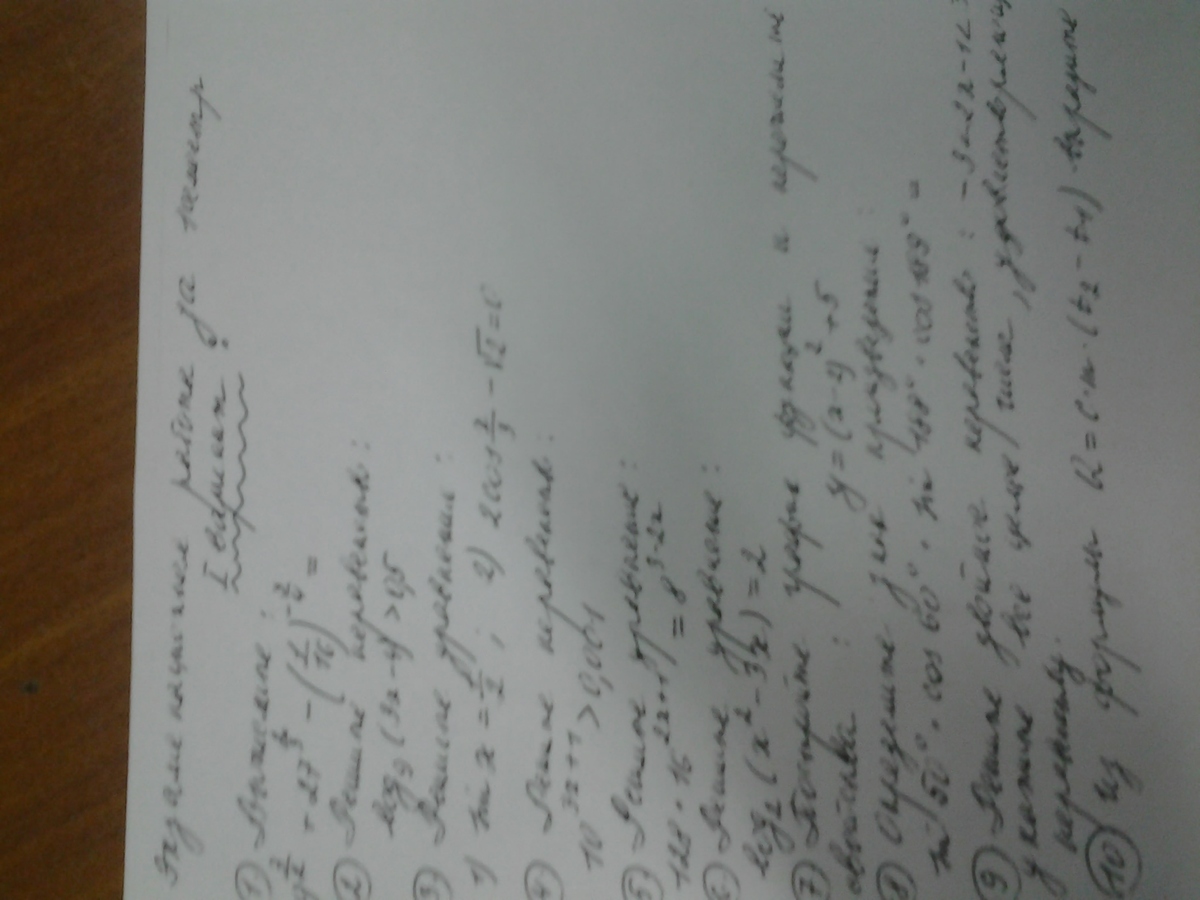 Экзаменационная работа за семестр
I вариант.
① Вычислите:
+ 27 - (1/16) =
② Решите неравенство:
log₉(3x-4) > 0,5
③ Решите уравнения:
1) sin x = 1/2 ; 2) 2cos - √2 = 0
④ Решите неравенство:
10^(3x+1) > 0,001
⑤ Решите уравнение:
128 · 16^(2x+1) = 8^(3-2x)
⑥ Решите уравнение:
log₂(x² - 3x) = 2
⑦ Постройте график функции и перечислите
свойства : y = (x-)² + 5
⑧ Определите знак произведения:
sin 50° · cos 60° · sin 188° · cos 189° =
⑨ Решите двойное неравенство:
укажите все целые числа, удовлетворяющие
неравенству
⑩ Из формулы Q = c·m·(t₂ - t₁) выразите